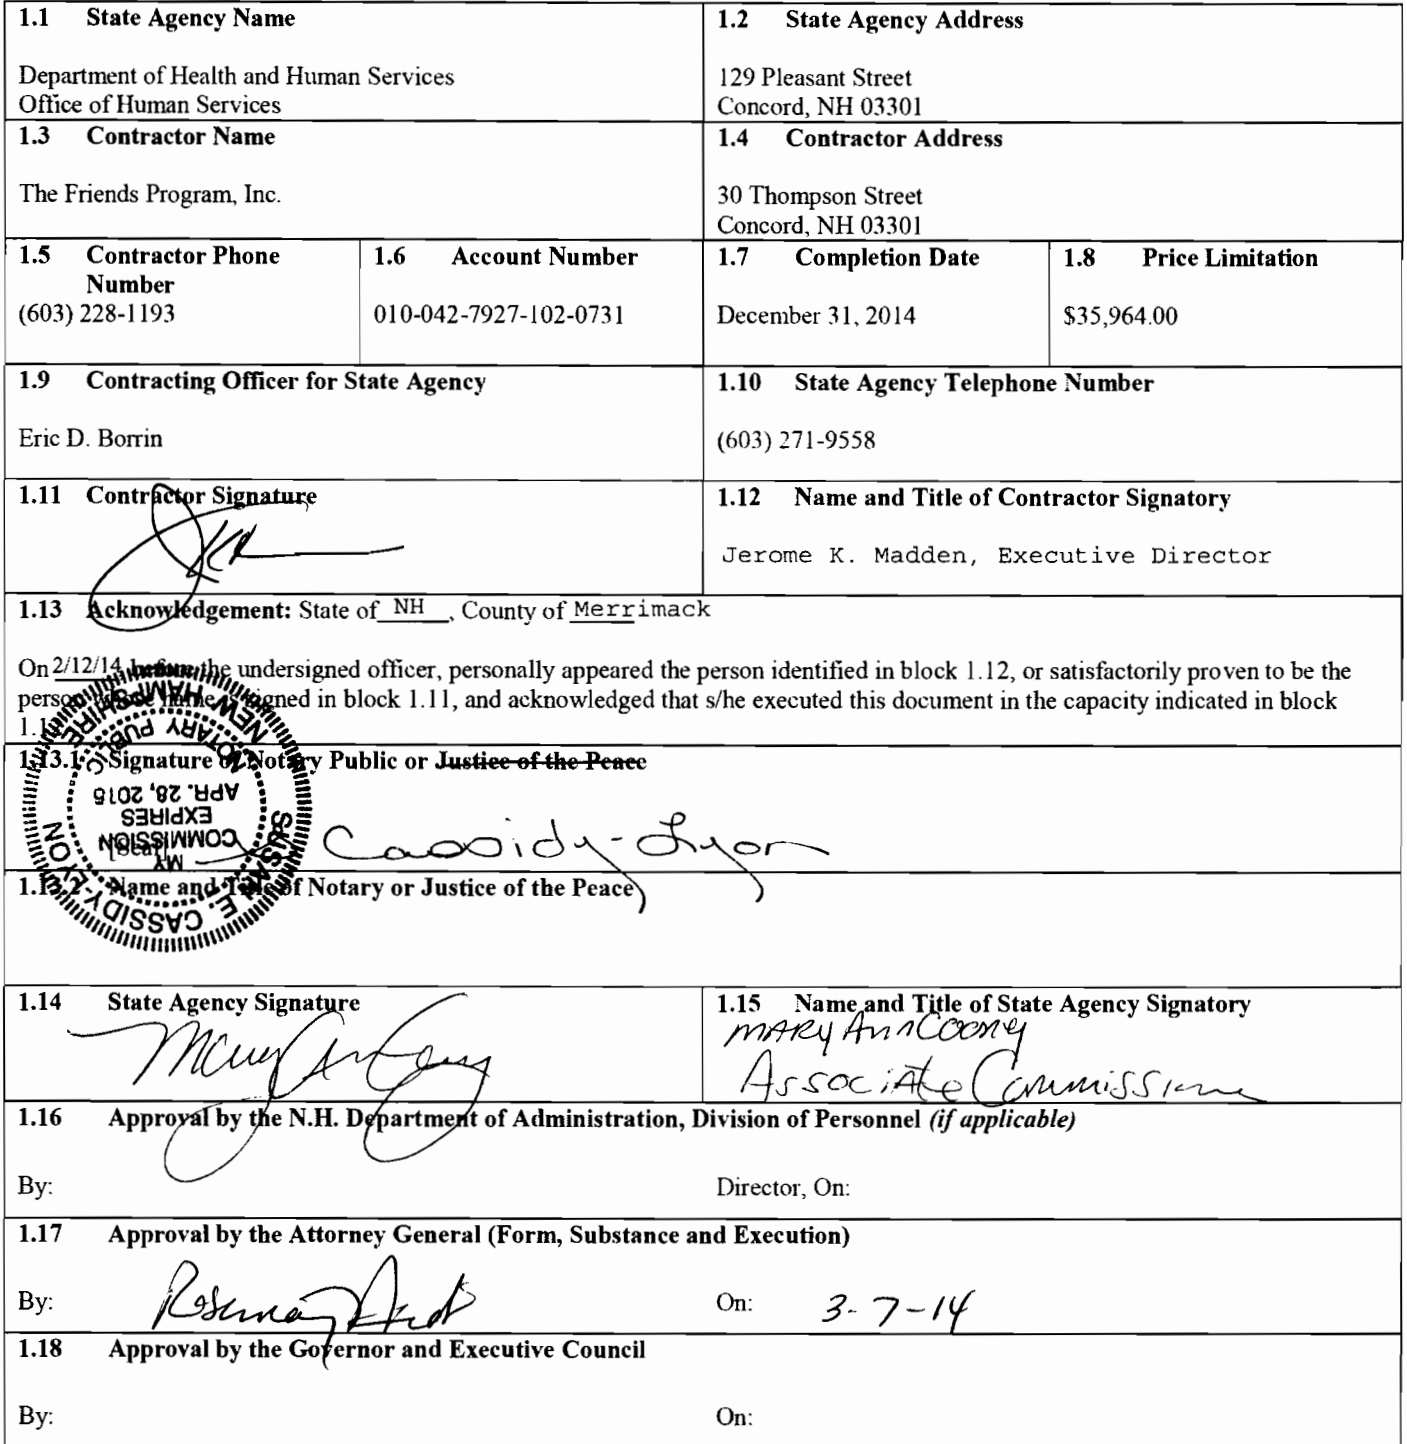 1.1 State Agency Name
Department of Health and Human Services
Office of Human Services
1.2 State Agency Address
129 Pleasant Street
Concord, NH 03301
1.3 Contractor Name
The Friends Program, Inc.
1.4 Contractor Address
30 Thompson Street
Concord, NH 03301
1.5 Contractor Phone
Number
(603) 228-1193
1.6 Account Number
010-042-7927-102-0731
1.7 Completion Date
December 31, 2014
1.8 Price Limitation
$35,964.00
1.9 Contracting Officer for State Agency
Eric D. Borrin
1.10 State Agency Telephone Number
(603) 271-9558
1.11 Contractor Signature
1.12 Name and Title of Contractor Signatory
Jerome K. Madden, Executive Director
1.13 Acknowledgement: State of NH, County of Merrimack
On 2/12/14, before the undersigned officer, personally appeared the person identified in block 1.12, or satisfactorily proven to be the
person whose name is signed in block 1.11, and acknowledged that s/he executed this document in the capacity indicated in block
1.13.1 Signature of Notary Public or Justice of the Peace
Cassidy-Lyon
[Seal]
SUSAN E. CASSIDY-LYON
NEW HAMPSHIRE
NOTARY PUBLIC
MY
COMMISSION
EXPIRES
APR. 28, 2015
Name and Title of Notary or Justice of the Peace
1.14 State Agency Signature
1.15 Name and Title of State Agency Signatory
Mary Ann Cooney
Associate Commissioner
1.16 Approval by the N.H. Department of Administration, Division of Personnel (if applicable)
By: Director, On:
1.17 Approval by the Attorney General (Form, Substance and Execution)
By: Rosemary On: 3-7-14
1.18 Approval by the Governor and Executive Council
By: On: